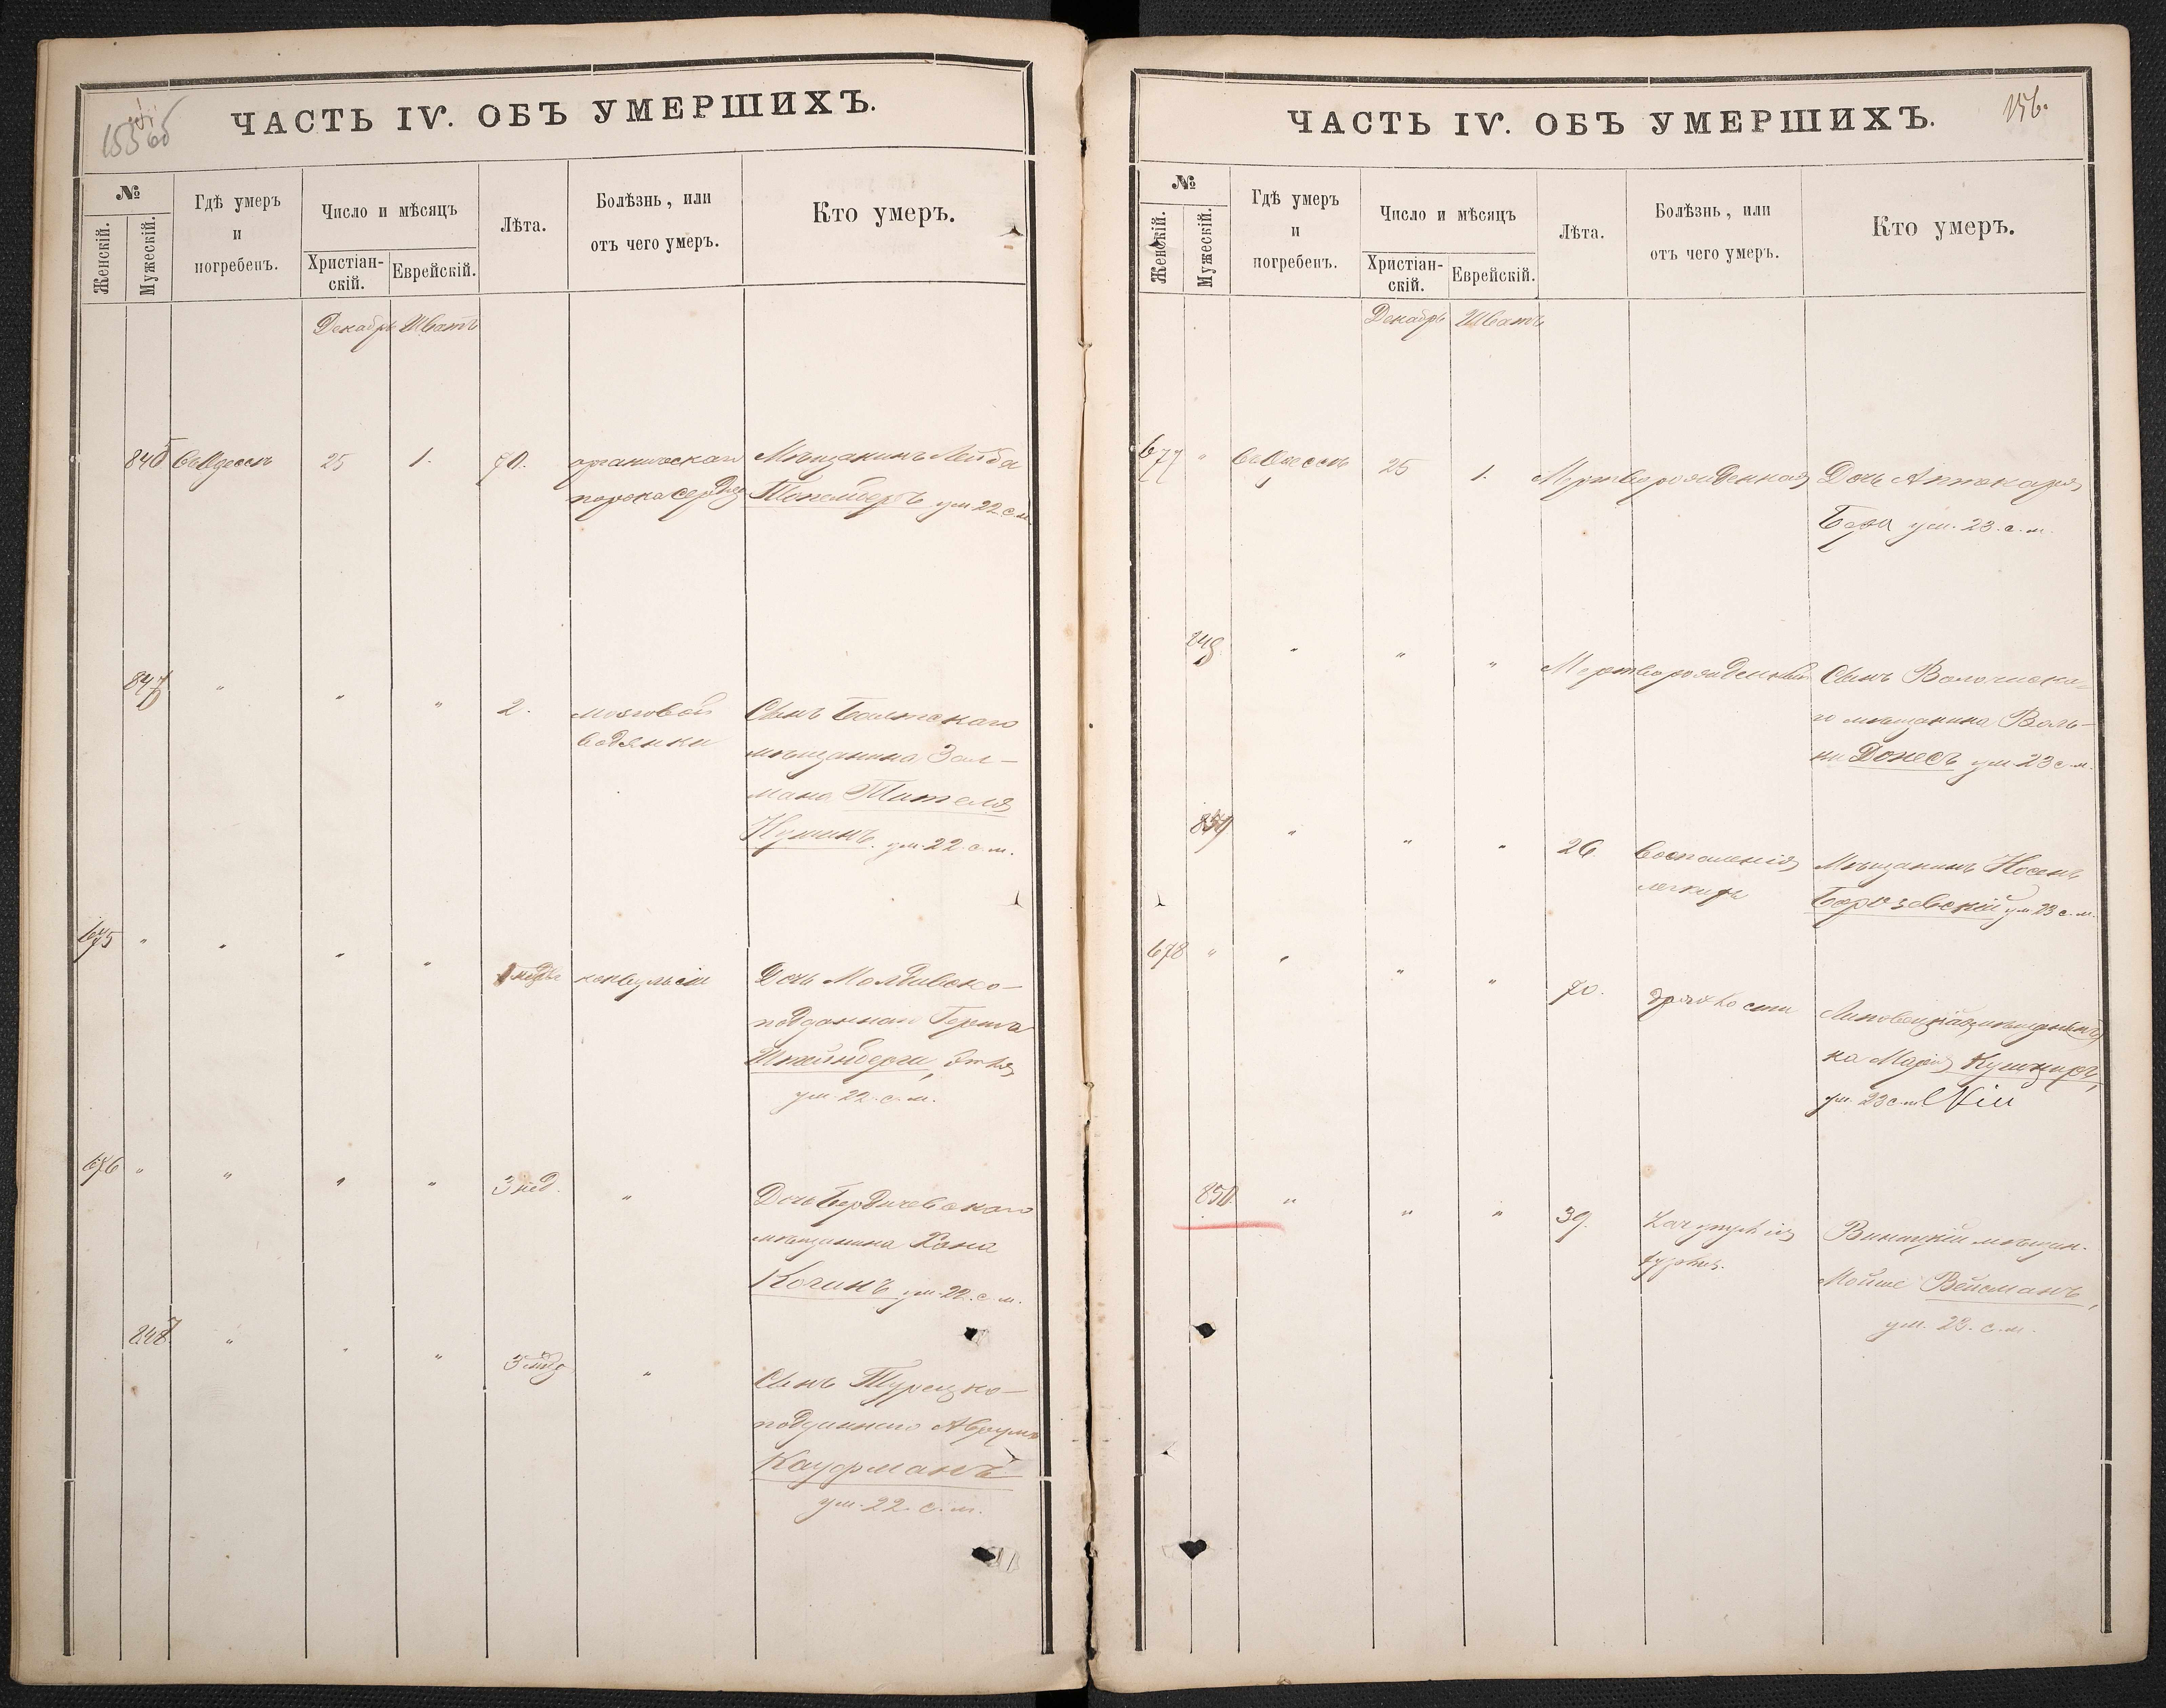 155 об
ЧАСТЬ IV. ОБЪ УМЕРШИХЪ.
№
Женскій.
Мужескій.
Гдѣ умеръ
и
погребенъ.
Число и мѣсяцъ
Христіан-
скій.
Еврейскій.
Лѣта.
Болѣзнь, или
отъ чего умеръ.
Кто умеръ.
Декабрь Шватъ
845 Въ Одессѣ 25 1. 70. органическаго Мѣщанинъ Лейба
порока сердца ум 22 с м
847 " " " 2. мозговой Сынъ Балтскаго
водянки мѣщанина Зал-
мана Тителя
ум. 22. с. м.
675 " " " " конвульсіи Дочь Молдавско-
подданнаго Герша
Штейнберга,
ум. 22. с. м.
676 " " " " 3 нед. " Дочь Бердичевскаго
мѣщанина Хона
Коганъ ум. 22. с. м.
848 " " " "
Сынъ Турецко-
подданнаго Аврума
Кауфманъ
ум. 22. с. м.
156.
ЧАСТЬ IV. ОБЪ УМЕРШИХЪ.
№
Женскій.
Мужескій.
Гдѣ умеръ
и
погребенъ.
Число и мѣсяцъ
Христіан-
скій.
Еврейскій.
Лѣта.
Болѣзнь, или
отъ чего умеръ.
Кто умеръ.
Декабрь Шватъ
677 " Въ Одессѣ 25 1. Мертворожденная Дочь Аптекаря
ум. 23. с. м.
" " " Мертворожденный Сынъ Волочиска-
го мѣщанина Воль-
ки Донесъ ум 23 с. м.
" " " 26 Воспаленія Мѣщанинъ Носенъ
легкихъ Березовскій ум 23 с. м.
678 " " " " 70. дряхлости
ка Марія Кушниръ,
ум. 23 с. м.
850 " " " 39. Виницкій мѣщан.
Мойше Вейсманъ,
ум. 23. с. м.